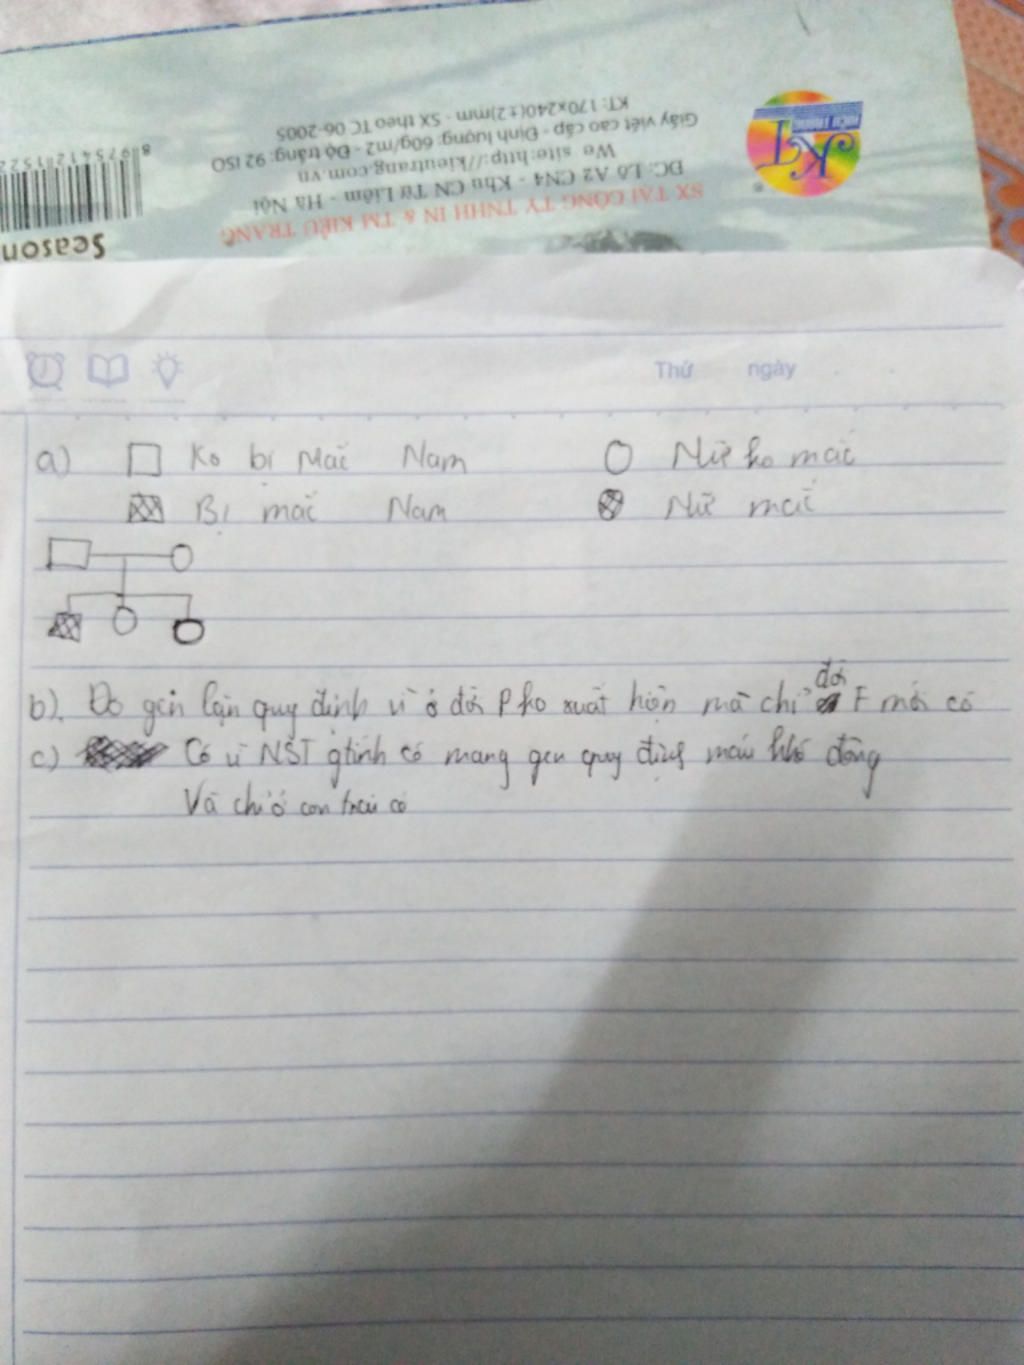 KT: 170x240(±2)mm - SX theo TC 06-2005
Giấy viết cao cấp - Định lượng: 60g/m2 - Độ trắng: 92 ISO
We site:http://kieutrang.com.vn
ĐC: Lô A2 CN4 - Khu CN Từ Liêm - Hà Nội
SX TẠI CÔNG TY TNHH IN & TM KIỀU TRANG
KT
Season
Thứ ngày
a) Ko bị Mắc Nam Nữ ko mắc
Bị mắc Nam Nữ mắc
b). Do gen lặn quy định vì ở đời P ko xuất hiện mà chỉ đời F mới có
c) Có vì NST gtính có mang gen quy định máu khó đông
Và chỉ ở con trai có